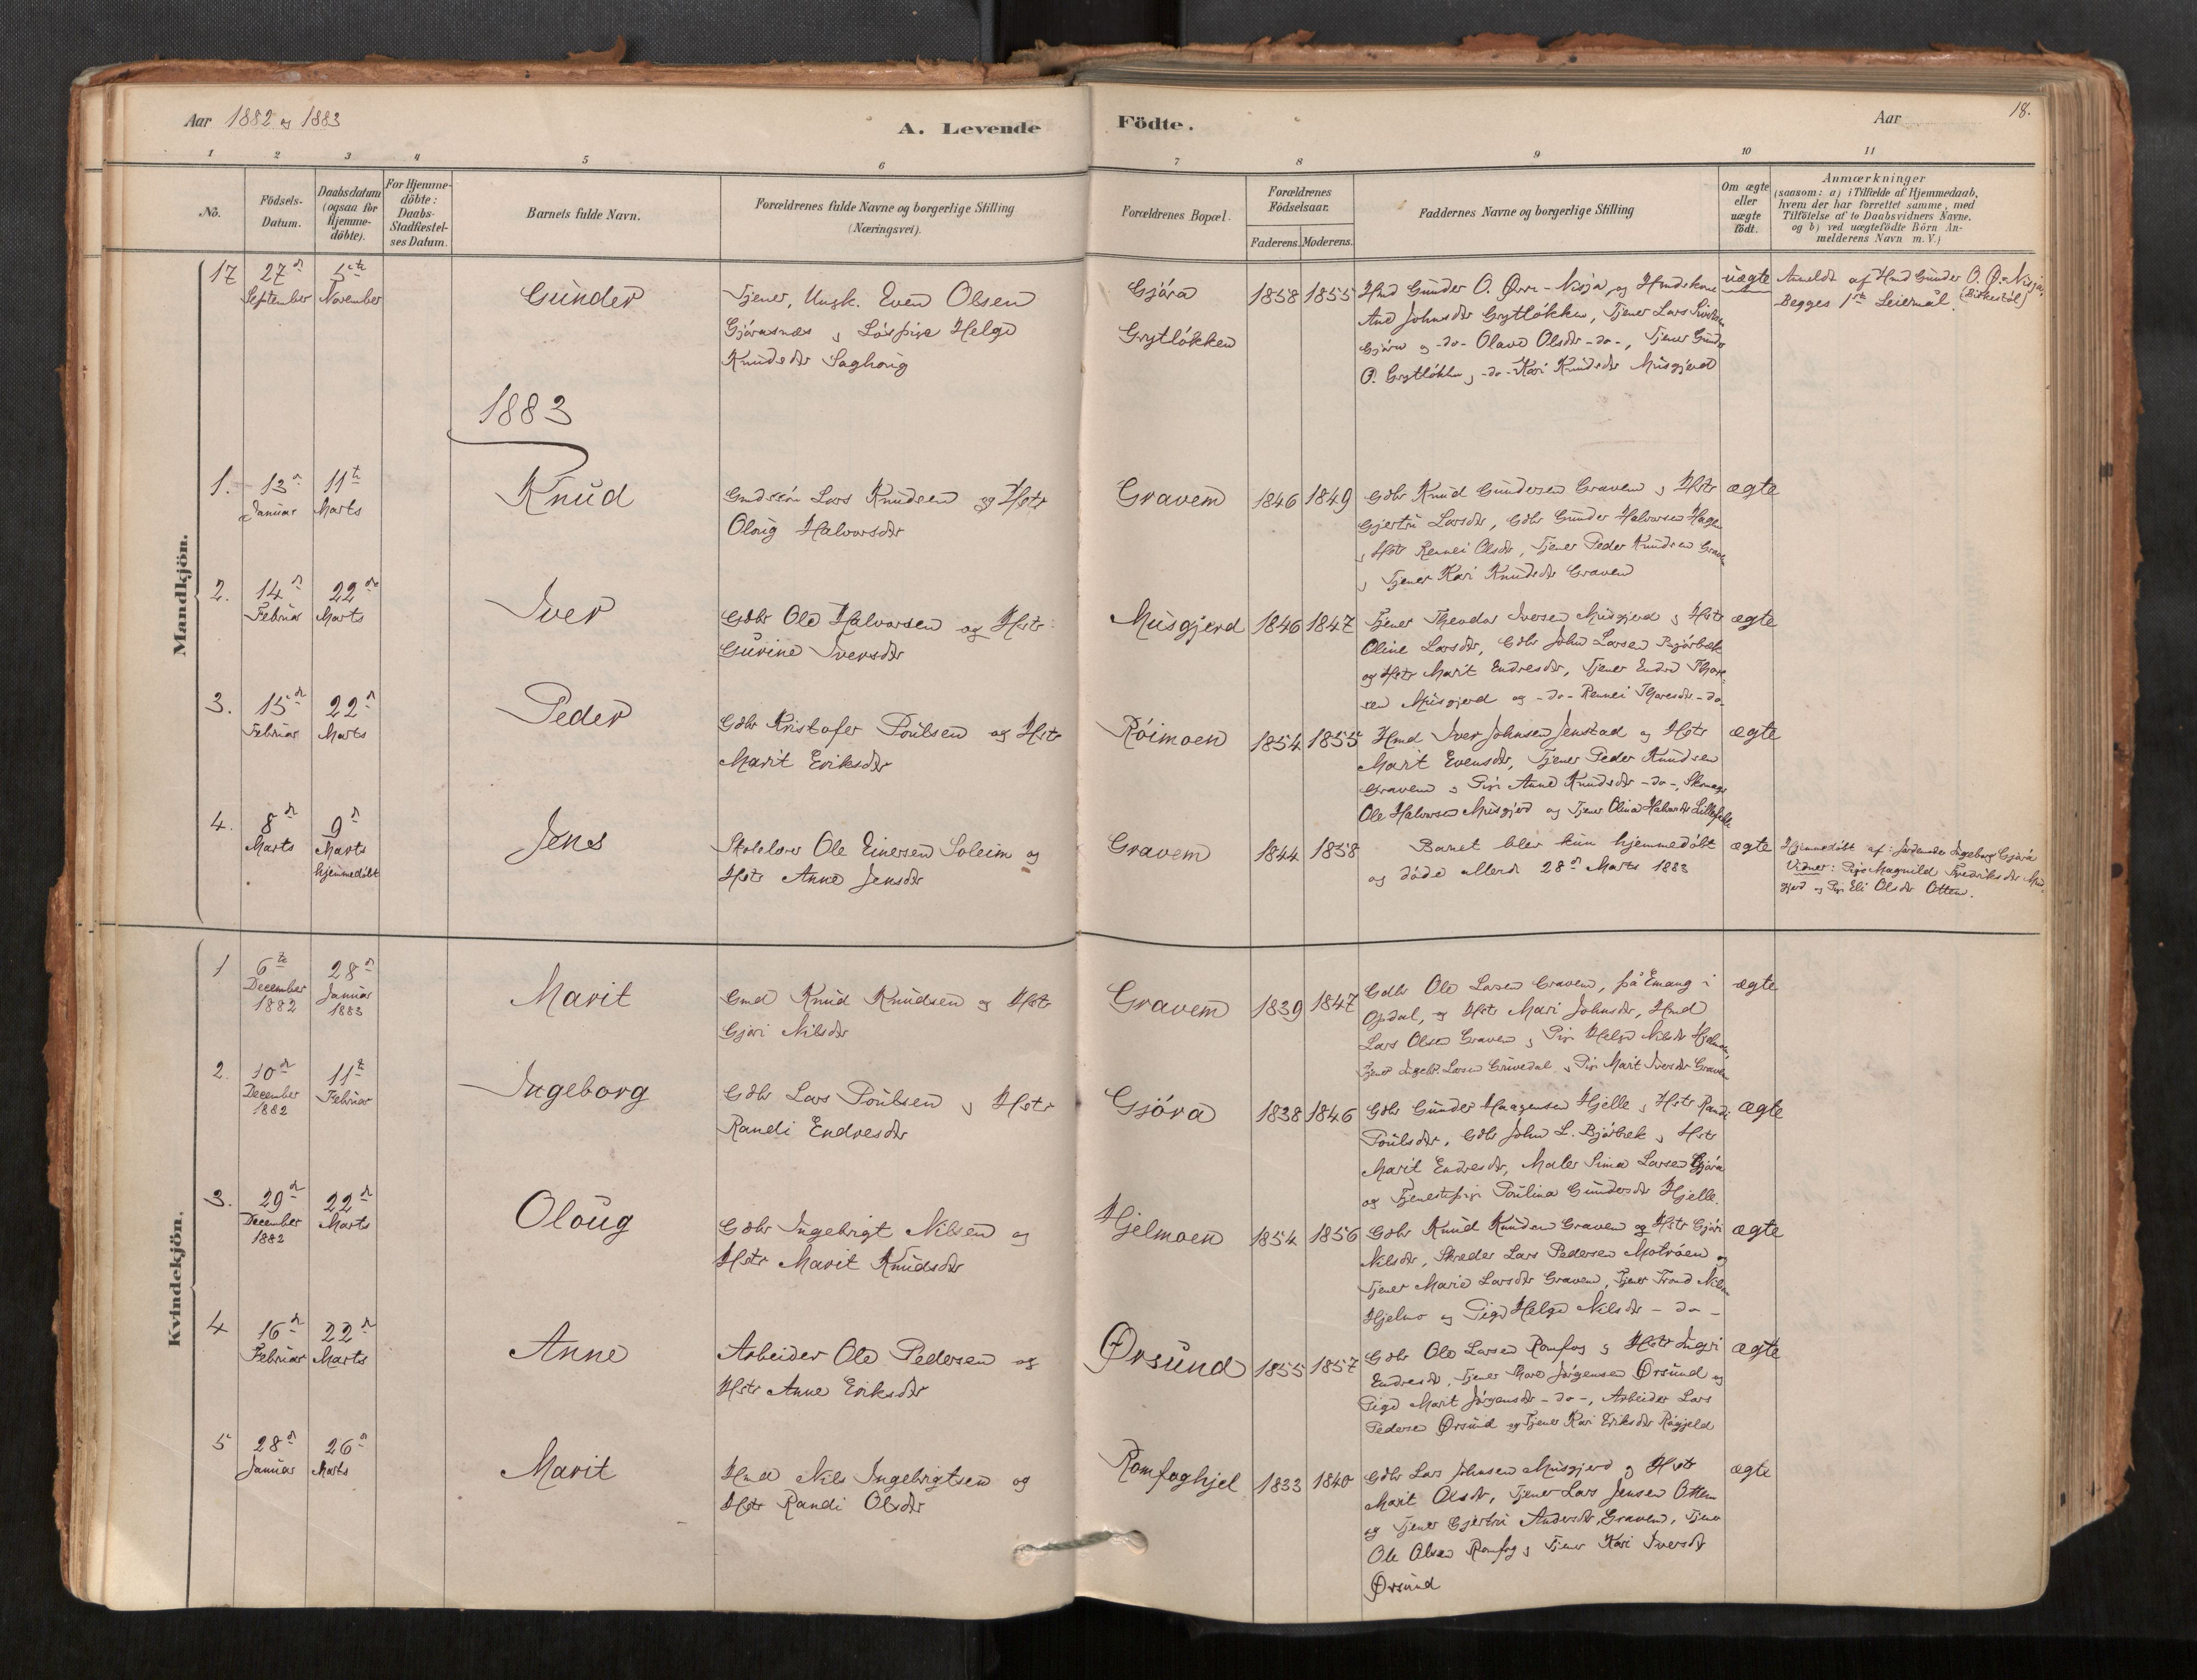 Aar 1882 og 1883
A. Levende
Födte.
Aar
18.
1 2 3 4 5 6 7 8 9 10 11
No.
Födsels-
Datum.
Daabsdatum
(ogsaa for
Hjemme-
döbte).
For Hjemme-
döbte:
Daabs-
Stadfæstel-
ses Datum.
Barnets fulde Navn.
Forældrenes fulde Navne og borgerlige Stilling
(Næringsvei).
Forældrenes Bopæl.
Forældrenes
Födselsaar.
Faderens. Moderens.
Faddernes Navne og borgerlige Stilling
Om ægte
eller
uægte
födt.
Anmærkninger
(saasom: a) i Tilfælde af Hjemmedaab,
hvem der har forrettet samme, med
Tilföielse af to Daabsvidners Navne.
og b) ved uægtefödte Börn An-
melderens Navn m.V.)
Mandkjön.
17
27d
September
5te
November
Gunder
Tjener, Ungk. Even Olsen
Gjøranæs og Løspige Helge
Knudsdr Saghoug
Gjøra
Grytløkken
1858 1855
Hmd Gunder O. Øvre-Nisja og Hmdskone
Ane Johnsdr Grytløkken, Tjener Lars
Gjøra og -do- Olava Olsdr -do-, Tjener Gunder
O. Grytløkken, -do- Kari Knudsdr Musgjerd
uægte
Anmeldt af Hmd Gunder O. Ø. Nisja
Begges 1ste Leiermål.
1883
1.
13d
Januar
11te
Marts
Knud
Gmdssøn Lars Knudsen og Hstr
Oloug Halvorsdr
Gravem
1846 1849
Gdbr Knud Gundersen Gravem og Hstr
Gjertru Larsdr, Gdbr Gunder Halvorsen Hagen
og Hstr Rennei Olsdr, Tjener Peder Knudsen Gravem
og Tjener Kari Knudsdr Gravem
ægte
2.
14d
Februar
22de
Marts
Iver
Gdbr Ole Halvorsen og Hstr
Gurine Iversdr
Musgjerd
1846 1847
Tjener Theodor Iversen Musgjerd og Hstr
Oline Larsdr, Gdbr John Larsen Bjørbæk
og Hstr Marit Endresdr, Tjener Endre Thore-
sen Musgjerd og -do- Rennei Thoresdr -do-
ægte
3.
15d
Februar
22d
Marts
Peder
Gdbr Kristofer Poulsen og Hstr
Marit Eriksdr
Røimoen
1854 1855
Hmd Iver Johnsen Jenstad og Hstr
Marit Evensdr, Tjener Peder Knudsen
Gravem og Pige Anne Knudsdr -do-, Skomager
Ole Halvorsen Musgjerd og Tjener Olina Halvorsdr Lillefjeld
ægte
4.
8d
Marts
9d
Marts
hjemmedøbt
Jens
Skolelærer Ole Einersen Soleim og
Hstr Anne Jensdr
Gravem
1844 1858
Barnet blev kun hjemmedøbt
og døde allerede 28d Marts 1883
ægte
Hjemmedøbt af: Jordemoder Ingeborg Gjøra
Vidner: Pige Magnild Fredriksdr Mus-
gjerd og Pige Eli Olsdr Ottem.
Kvindekjön.
1
6te
December
1882
28d
Januar
1883
Marit
Gmd Knud Knudsen og Hstr
Gjøri Nilsdr
Gravem
1839 1847
Gdbr Ole Larsen Gravem, på Emang i
Opdal, og Hstr Mari Johnsdr, Hmd
Lars Olsen Gravem og Pige Helge Nilsdr Hjelmoen,
Tjener Ingebr. Larsen Grøvedal og Pige Marit Iversdr Gravem
ægte
2.
10d
December
1882
11te
Februar
Ingeborg
Gdbr Lars Poulsen og Hstr
Randi Endresdr
Gjøra
1838 1846
Gdbr Gunder Haagensen Hjelle og Hstr Randi
Poulsdr, Gdbr John L. Bjørbæk og Hstr
Marit Endresdr, Maler Sima Larsen Gjøra
og Tjenestepige Poulina Gundersdr Hjelle.
ægte
3.
29d
December
1882
22d
Marts
Oloug
Gdbr Ingebrigt Nilsen og
Hstr Marit Knudsdr
Hjelmoen
1854 1856
Gdbr Knud Knudsen Gravem og Hstr Gjøri
Nilsdr, Skræder Lars Pedersen Motrøen og
Tjener Marie Larsdr Gravem, Tjener Trond Nilsen
Hjelmo og Pige Helge Nilsdr -do-
ægte
4
16d
Februar
22d
Marts
Anne
Arbeider Ole Pedersen og
Hstr Anne Eriksdr
Ørsund
1855 1857
Gdbr Ole Larsen Romfog og Hstr Ingri
Endresdr, Tjener Thore Jørgensen Ørsund og
Pige Marit Jørgensdr -do-, Arbeider Lars
Pedersen Ørsund og Tjener Kari Eriksdr
ægte
5
28d
Januar
26d
Marts
Marit
Hmd Nils Ingebrigtsen og
Hstr Randi Olsdr
Romfoghjel
1833 1840
Gdbr Lars Johnsen Musgjerd og Hstr
Marit Olsdr, Tjener Lars Jensen Ottem
og Tjener Gjertru Andersdr Gravem, Tjener
Ole Olsen Romfog og Tjener Kari Iversdr
Ørsund
ægte